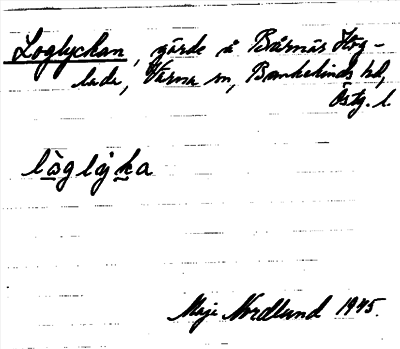 Loglyckan, gärde å Bårnäs Hög-
lada, Värna sn, Bankekinds hd,
Östg. l.
lòglyka
Maje Nordlund 1945.